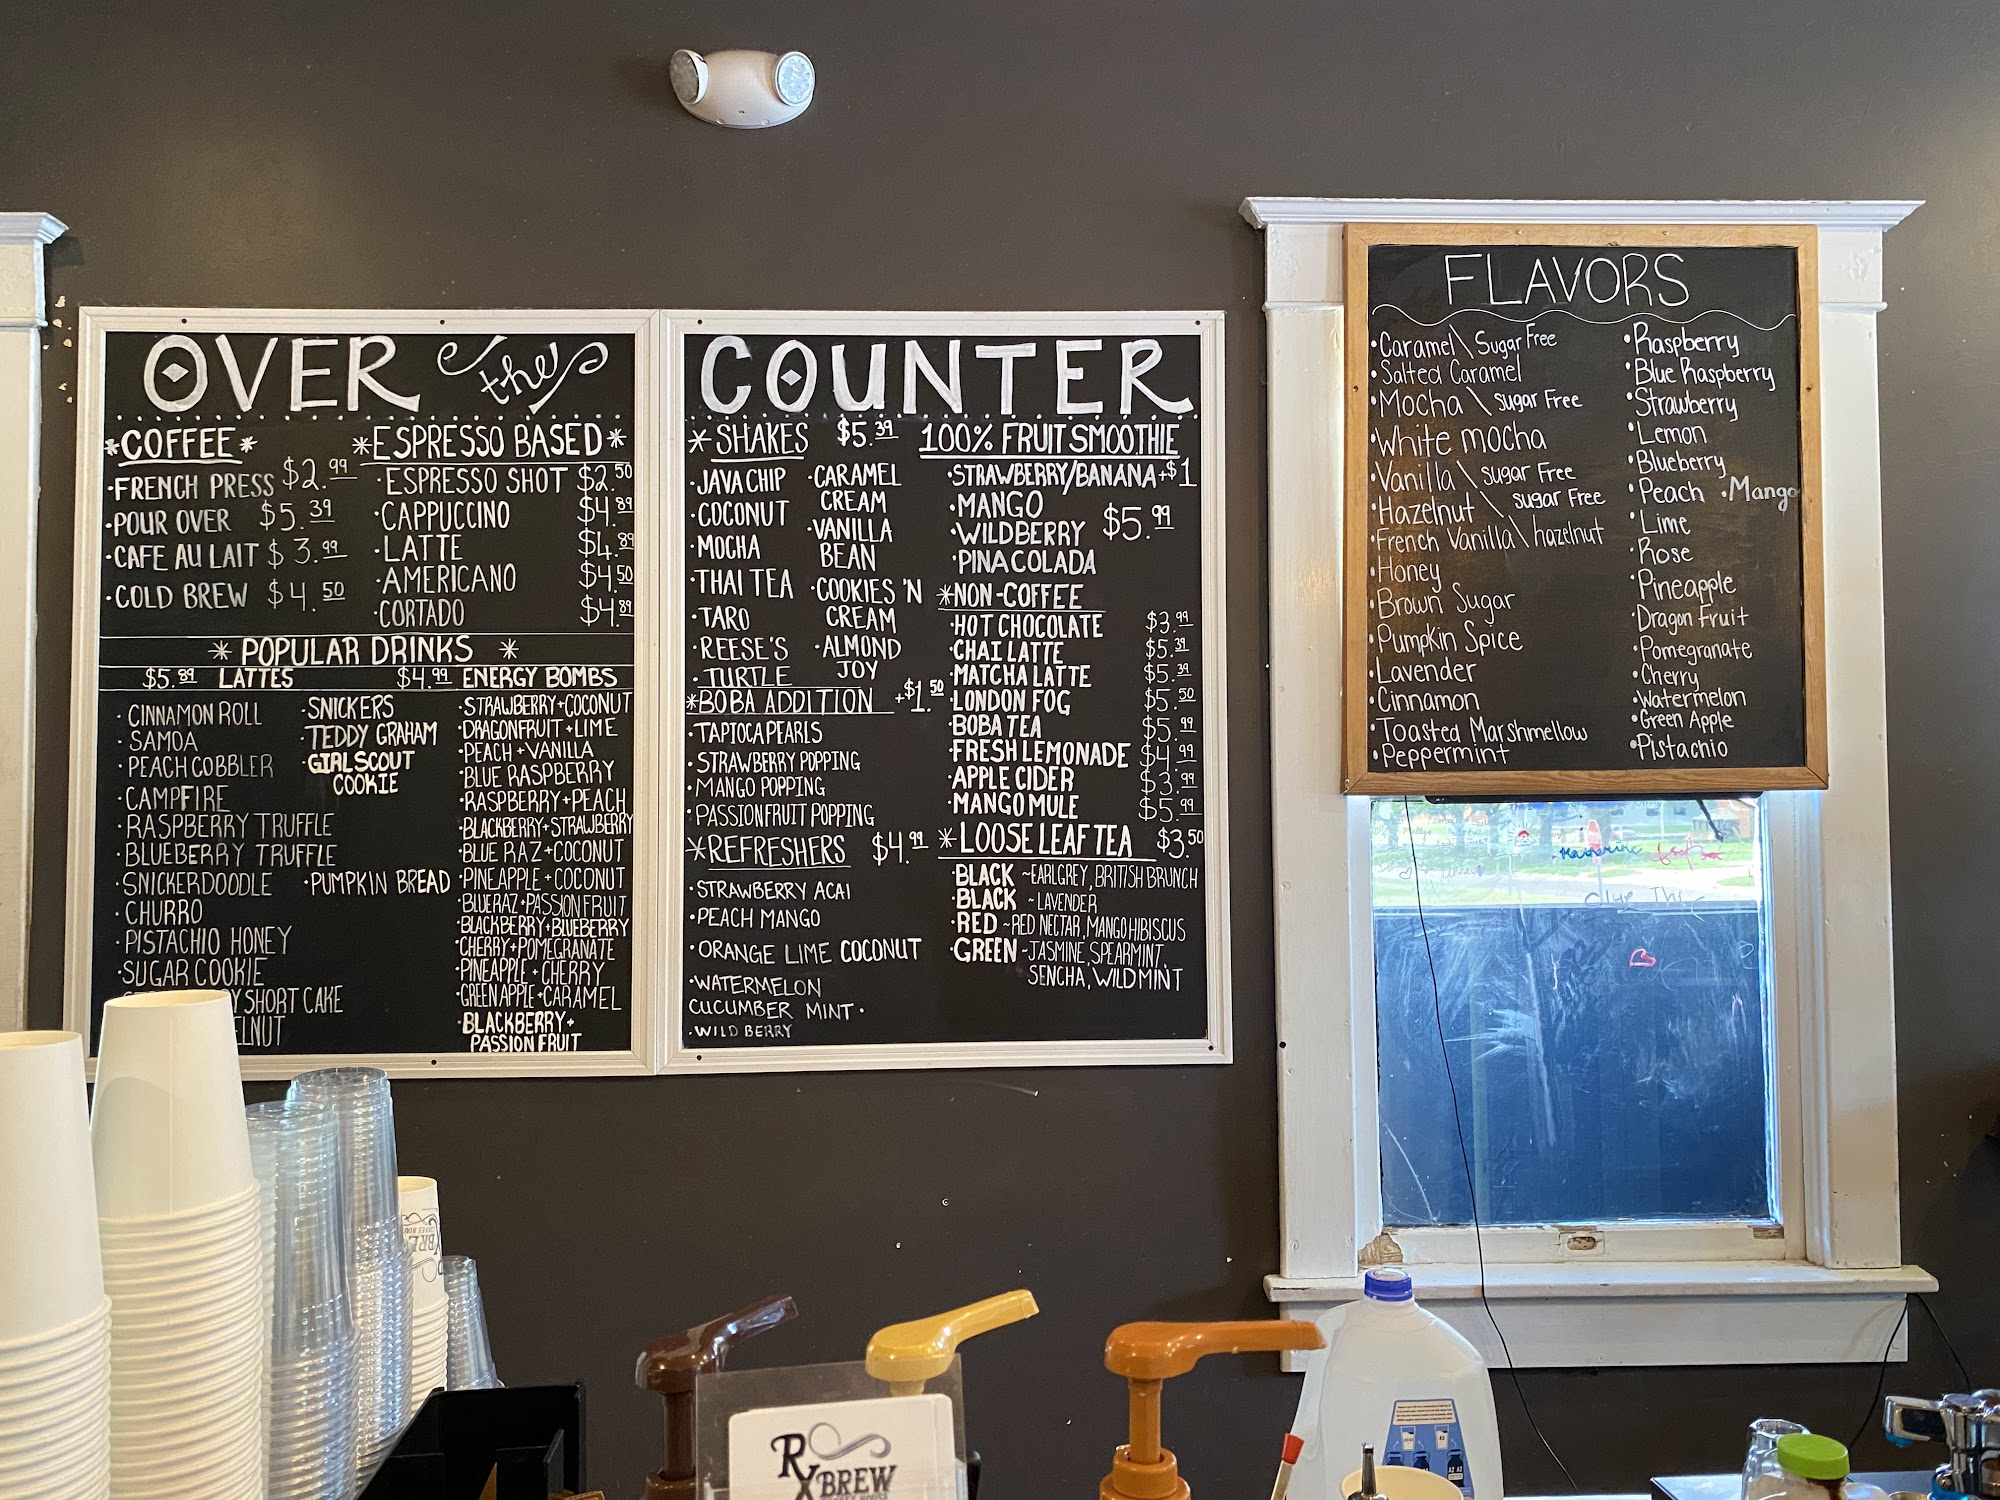 OVER the
*COFFEE*
·FRENCH PRESS $2.99
·POUR OVER $5.39
·CAFE AU LAIT $3.99
·COLD BREW $4.50
*ESPRESSO BASED*
·ESPRESSO SHOT $2.50
·CAPPUCCINO $4.89
·LATTE $4.89
·AMERICANO $4.50
·CORTADO $4.89
* POPULAR DRINKS *
$5.89 LATTES
·CINNAMON ROLL
·SAMOA
·PEACH COBBLER
·CAMPFIRE
·RASPBERRY TRUFFLE
·BLUEBERRY TRUFFLE
·SNICKERDOODLE
·CHURRO
·PISTACHIO HONEY
·SUGAR COOKIE
SHORT CAKE
·SNICKERS
·TEDDY GRAHAM
·GIRLSCOUT
COOKIE
·PUMPKIN BREAD
$4.99 ENERGY BOMBS
·STRAWBERRY+COCONUT
·DRAGONFRUIT+LIME
·PEACH+VANILLA
·BLUE RASPBERRY
·RASPBERRY+PEACH
·BLACKBERRY+STRAWBERRY
·BLUE RAZ+COCONUT
·PINEAPPLE+COCONUT
·BLUERAZ+PASSIONFRUIT
·BLACKBERRY+BLUEBERRY
·CHERRY+POMEGRANATE
·PINEAPPLE+CHERRY
·GREENAPPLE+CARAMEL
·BLACKBERRY+
PASSION FRUIT
COUNTER
*SHAKES $5.39
·JAVA CHIP
·COCONUT
·MOCHA
·THAI TEA
·TARO
·REESE'S
·TURTLE
·CARAMEL
CREAM
·VANILLA
BEAN
·COOKIES 'N
CREAM
·ALMOND
JOY
*BOBA ADDITION +$1.50
·TAPIOCA PEARLS
·STRAWBERRY POPPING
·MANGO POPPING
·PASSIONFRUIT POPPING
*REFRESHERS $4.99
·STRAWBERRY ACAI
·PEACH MANGO
·ORANGE LIME COCONUT
·WATERMELON
CUCUMBER MINT·
·WILD BERRY
100% FRUIT SMOOTHIE
·STRAWBERRY/BANANA+$1
·MANGO
·WILDBERRY $5.99
·PINA COLADA
*NON-COFFEE
·HOT CHOCOLATE $3.99
·CHAI LATTE $5.39
·MATCHA LATTE $5.39
·LONDON FOG $5.50
·BOBA TEA $5.99
·FRESH LEMONADE $4.99
·APPLE CIDER $3.99
·MANGO MULE $5.99
*LOOSE LEAF TEA $3.50
·BLACK ~EARLGREY, BRITISH BRUNCH
·BLACK ~LAVENDER
·RED ~RED NECTAR, MANGO HIBISCUS
·GREEN ~JASMINE, SPEARMINT,
SENCHA, WILD MINT
FLAVORS
·Caramel\Sugar Free
·Salted Caramel
·Mocha \ sugar Free
·White mocha
·Vanilla \ sugar Free
·Hazelnut \ sugar Free
·French Vanilla \ hazelnut
·Honey
·Brown Sugar
·Pumpkin Spice
·Lavender
·Cinnamon
·Toasted Marshmellow
·Peppermint
·Raspberry
·Blue Raspberry
·Strawberry
·Lemon
·Blueberry
·Peach ·Mango
·Lime
·Rose
·Pineapple
·Dragon Fruit
·Pomegranate
·Cherry
·Watermelon
·Green Apple
·Pistachio
RX BREW